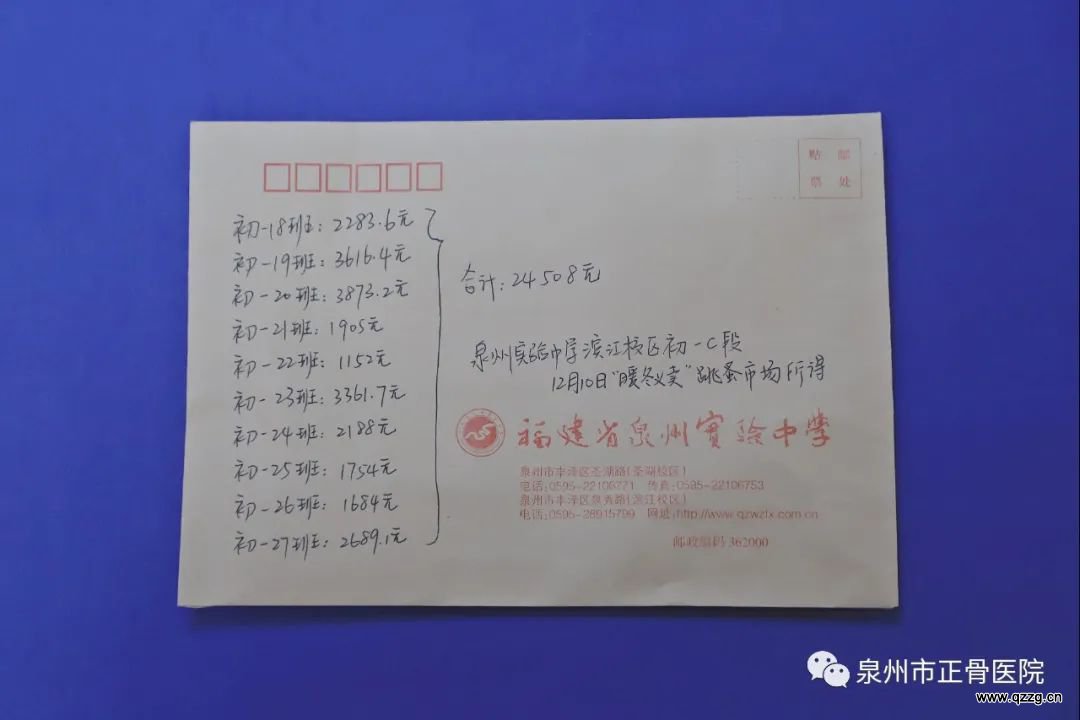 贴 邮
票 处
初-18班: 2283.6元
初-19班: 3616.4元
初-20班: 3873.2元
初-21班: 1905元
初-22班: 1152元
初-23班: 3361.7元
初-24班: 2188元
初-25班: 1754元
初-26班: 1684元
初-27班: 2689.1元
合计: 24508元
泉州实验中学滨江校区初一C段
12月10日“暖冬义卖”跳蚤市场所得
福建省泉州實验中学
泉州市丰泽区圣湖路(圣湖校区)
电话:0595-22109771 传真:0595-22106753
泉州市丰泽区泉秀路(滨江校区)
电话:0595-28915799 网址:http://www.qzwzfx.com.cn
邮政编码 362000
泉州市正骨医院
www.qzzg.cn